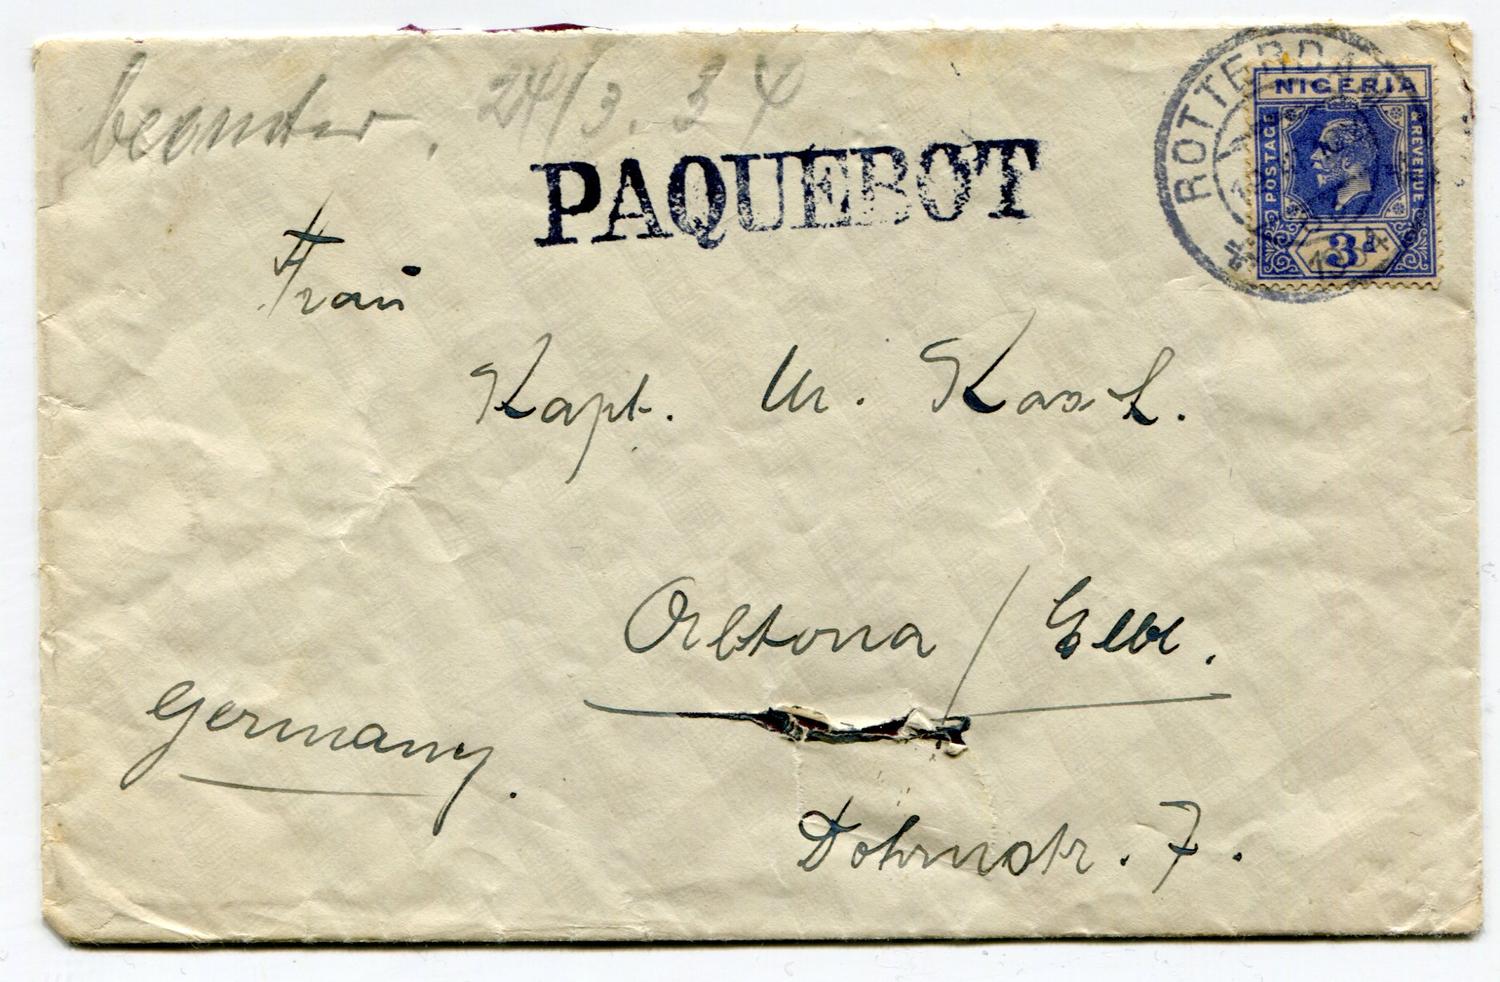 24/3.34
PAQUEBOT
ROTTERDA
1934
NIGERIA
POSTAGE
& REVENUE
3d
Frau
Kapt.
Altona / Elbe.
Germany.
Dohrnstr. 7.